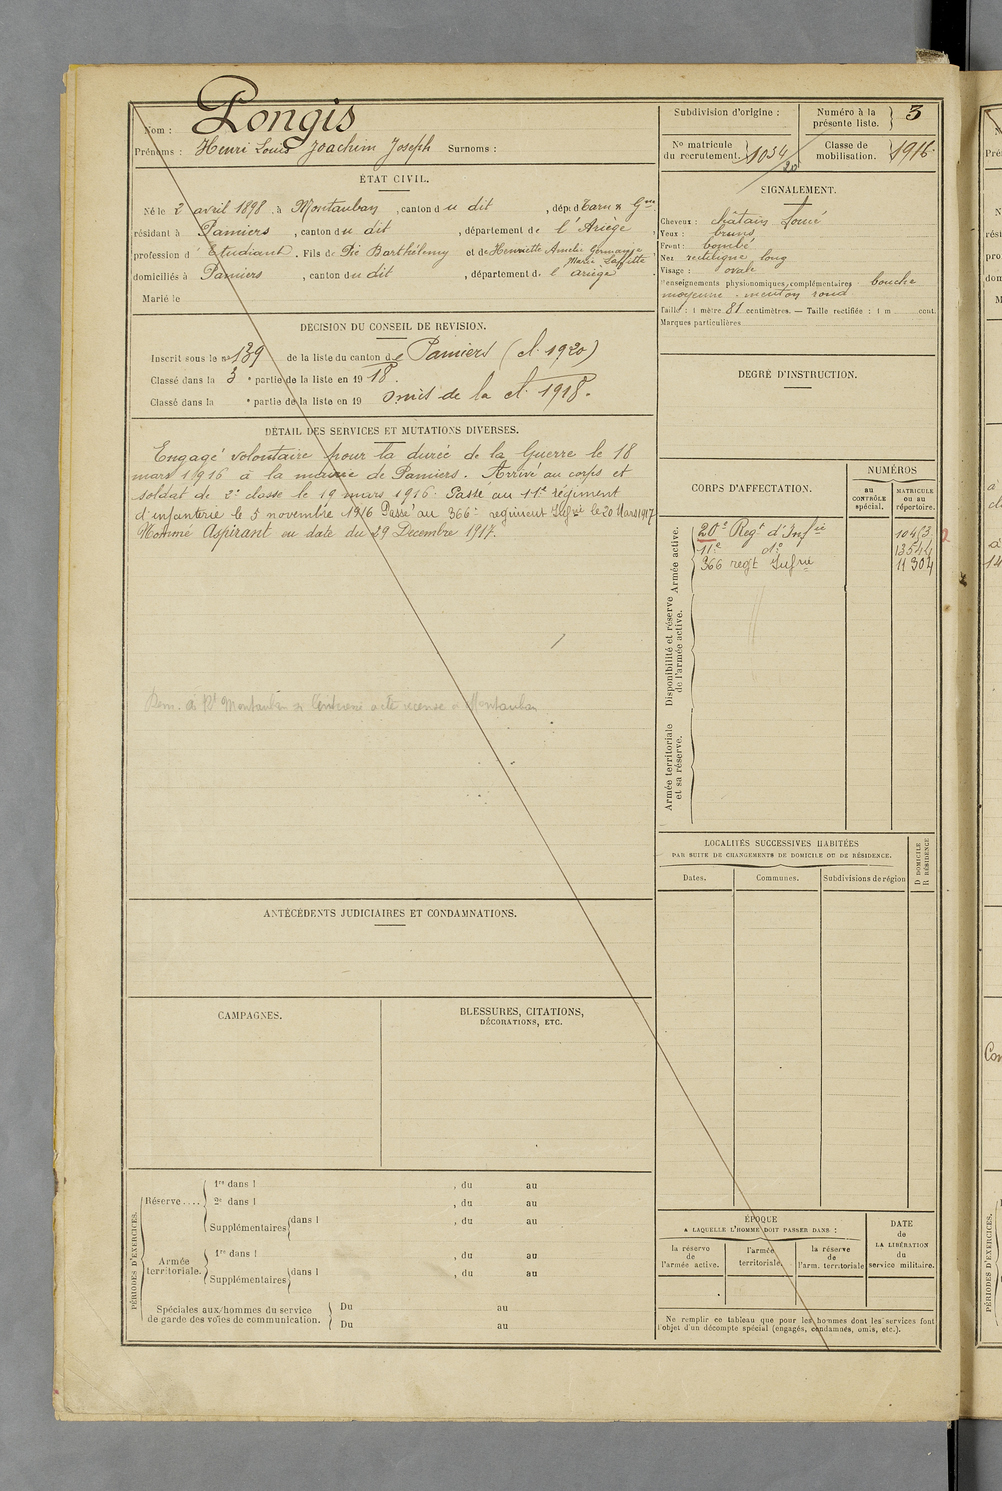 Nom : Pongis
Prénoms : Henri Louis Joachim Joseph Surnoms :
ÉTAT CIVIL.
Né le 2 avril 1898, à Montauban, canton du dit, dépt d Tarn & Gne
résidant à Pamiers, canton du dit, département de l'Ariège,
profession d'Etudiant. Fils de Pié Barthélemy et de Henriette Amélie Germaine
Marie Laffitte
domiciliés à Pamiers, canton du dit, département de l'ariège
Marié le
DÉCISION DU CONSEIL DE REVISION.
Inscrit sous le no 139 de la liste du canton de Pamiers (cl. 1920)
Classé dans la 3e partie de la liste en 1918.
Classé dans la e partie de la liste en 19 omis de la cl. 1918.
DÉTAIL DES SERVICES ET MUTATIONS DIVERSES.
Engagé volontaire pour la durée de la Guerre le 18
mars 1916 à la mairie de Pamiers. Arrivé au corps et
soldat de 2e classe le 19 mars 1916. Passé au 11e régiment
d'infanterie le 5 novembre 1916 Passé au 366e régiment Infrie le 20 Mars 1917
Nommé Aspirant en date du 29 Décembre 1917.
Montauban
acte
recensé à Montauban
ANTÉCÉDENTS JUDICIAIRES ET CONDAMNATIONS.
CAMPAGNES.
BLESSURES, CITATIONS,
DÉCORATIONS, ETC.
PÉRIODES D'EXERCICES.
Réserve....
1re dans l , du au
2e dans l , du au
Supplémentaires dans l , du au
Armée
territoriale.
1re dans l , du au
Supplémentaires dans l , du au
Spéciales aux hommes du service
de garde des voies de communication.
Du au
Du au
Subdivision d'origine :
Numéro à la
présente liste. 3
No matricule
du recrutement. 1034
20
Classe de
mobilisation. 1916.
SIGNALEMENT.
Cheveux : châtain foncé
Yeux : bruns
Front : bombé
Nez rectiligne long
Visage : ovale
Renseignements physionomiques complémentaires bouche
moyenne - menton rond
Taille : 1 mètre 81 centimètres. — Taille rectifiée : 1 m cent.
Marques particulières
DEGRÉ D'INSTRUCTION.
CORPS D'AFFECTATION.
NUMÉROS
au
CONTRÔLE
spécial.
MATRICULE
ou au
répertoire.
Armée active.
20e Regt d'Infie 10453
11e do 13544
366 regt Infrie 11304
Disponibilité et réserve
de l'armée active.
Armée territoriale
et sa réserve.
LOCALITÉS SUCCESSIVES HABITÉES
PAR SUITE DE CHANGEMENTS DE DOMICILE OU DE RÉSIDENCE.
Dates.
Communes.
Subdivisions de région
D DOMICILE
R RÉSIDENCE
ÉPOQUE
A LAQUELLE L'HOMME DOIT PASSER DANS :
la réserve
de
l'armée active.
l'armée
territoriale.
la réserve
de
l'arm. territoriale
DATE
de
LA LIBÉRATION
du
service militaire.
Ne remplir ce tableau que pour les hommes dont les services font
l'objet d'un décompte spécial (engagés, condamnés, omis, etc.).